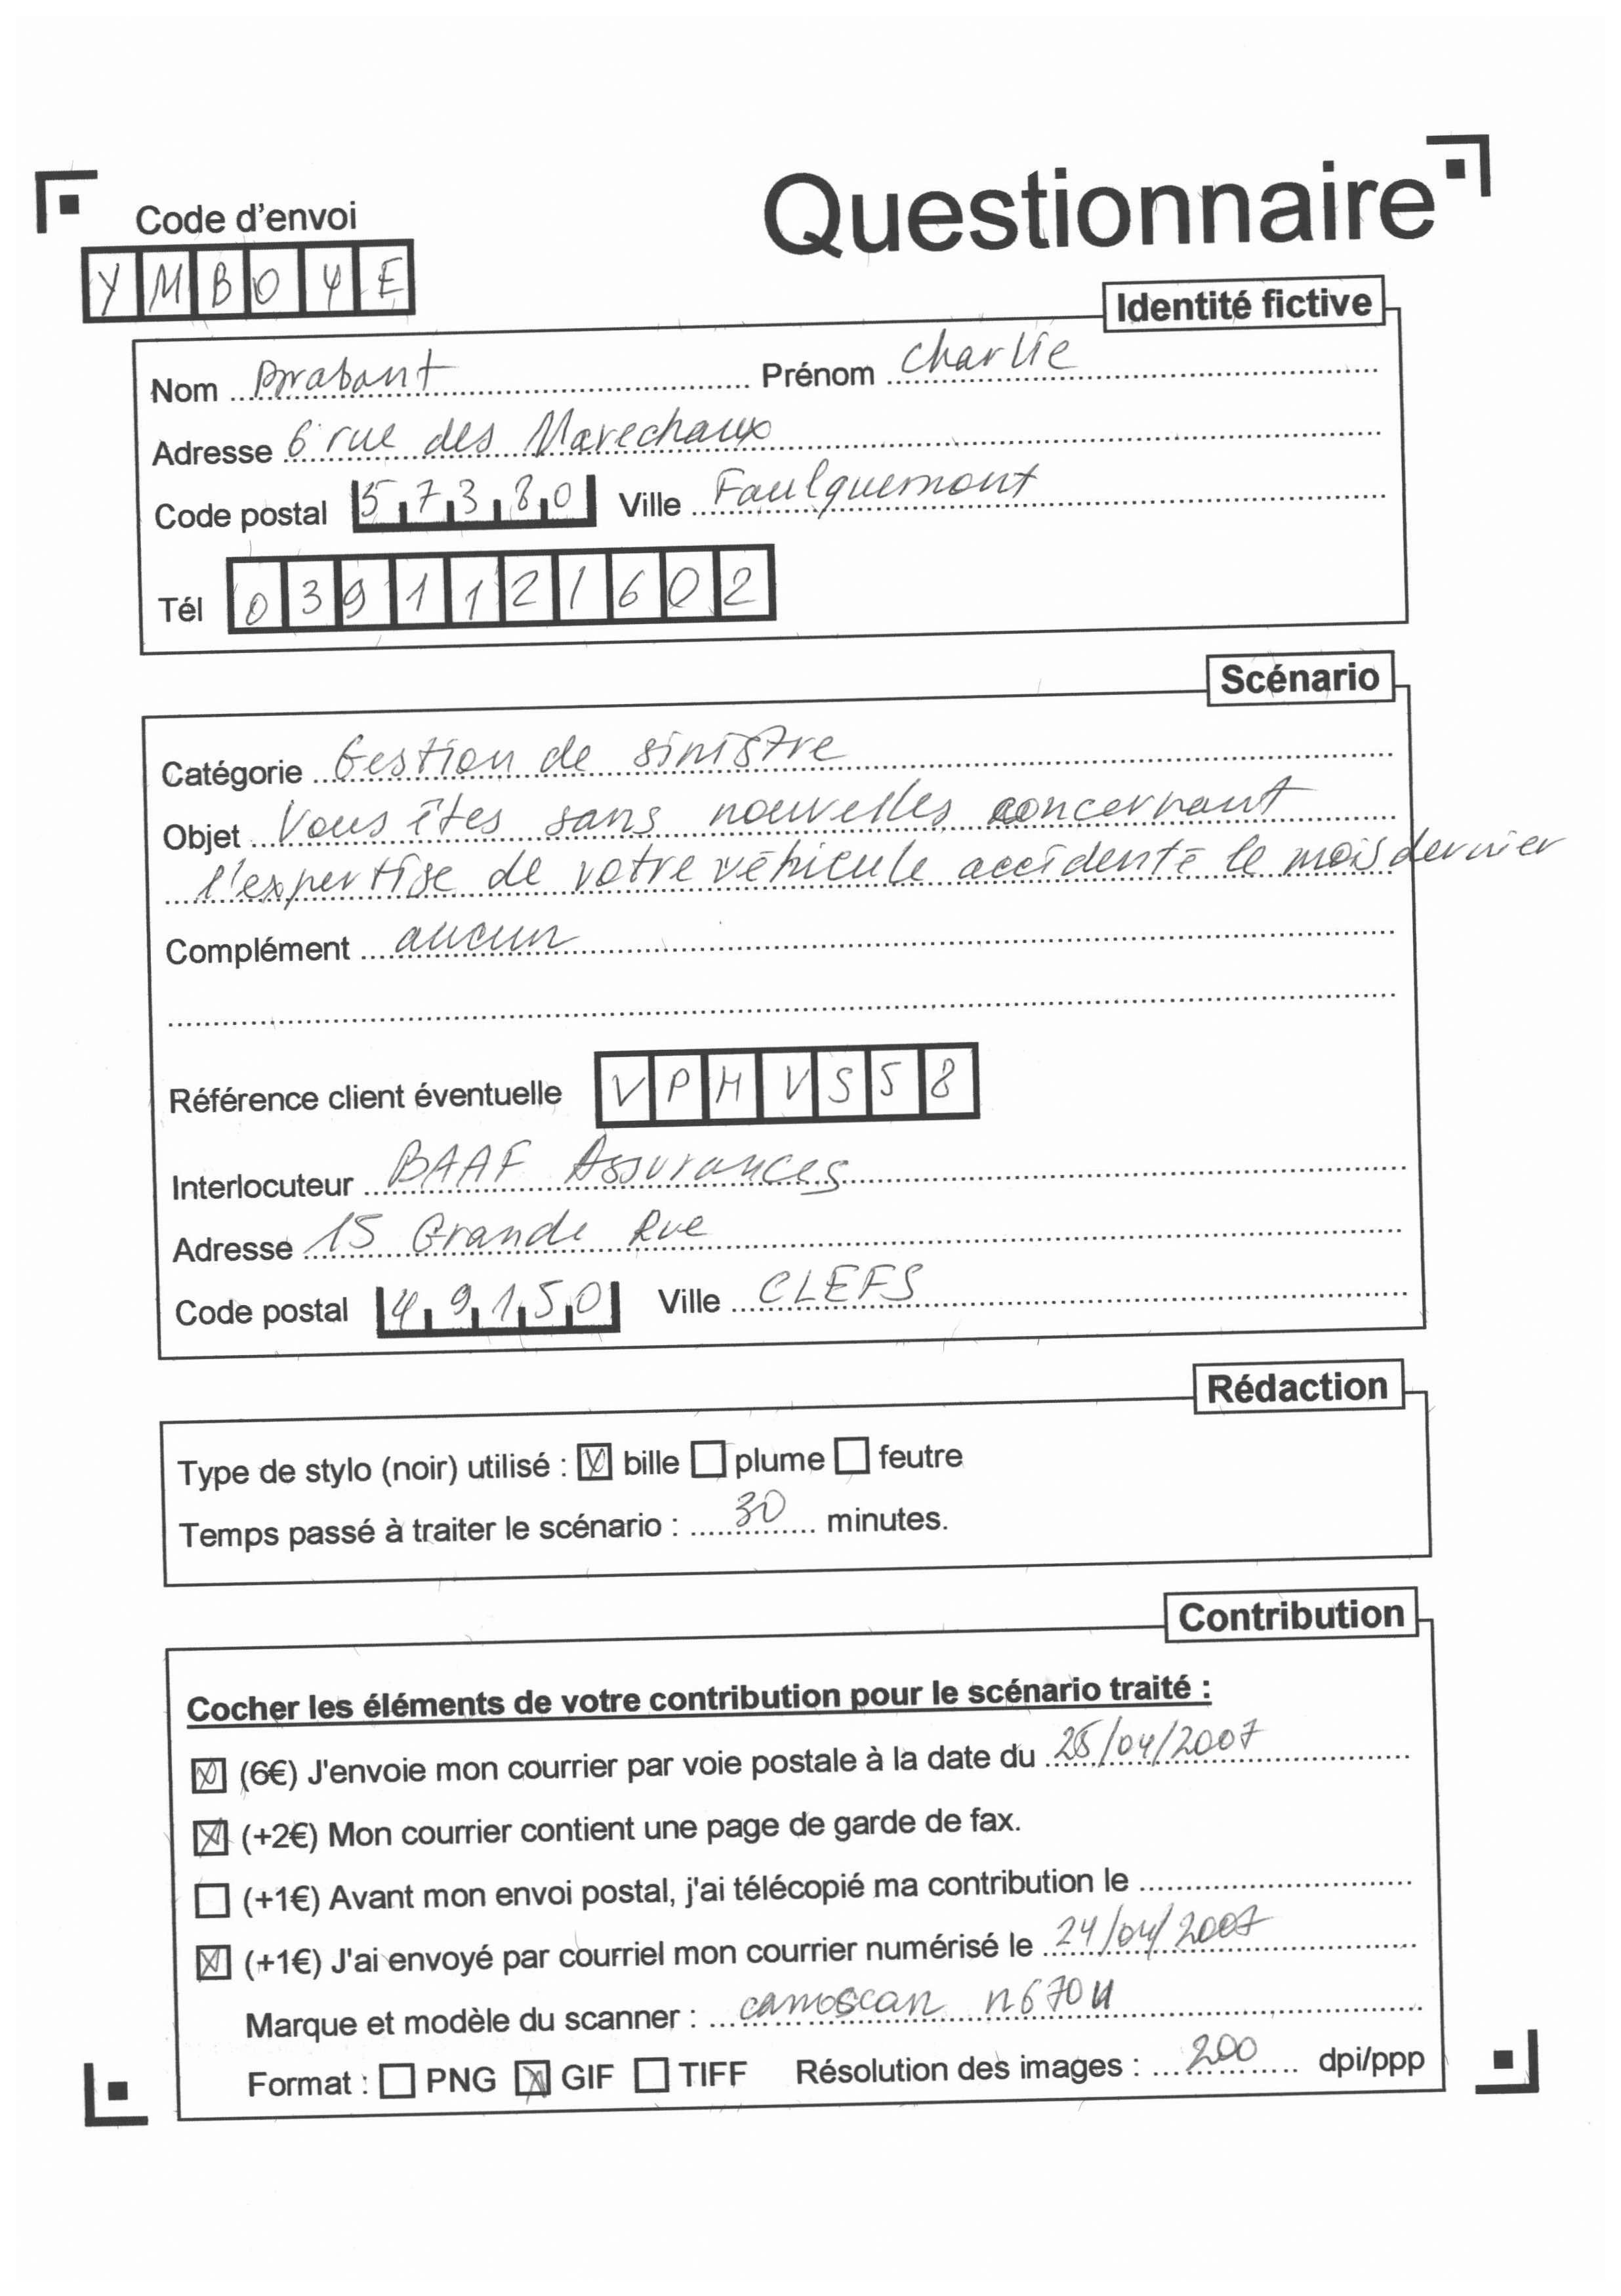 Questionnaire
Code d'envoi
YMB04E
Identité fictive
Nom Brabant Prénom Charlie
Adresse 6 rue des Marechaux
Code postal 57380 Ville Faulquemont
Tél 0391121602
Scénario
Catégorie Gestion de sinistre
Objet Vous êtes sans nouvelles concernant
l'expertise de votre véhicule accidenté le mois dernier
Complément aucun
Référence client éventuelle VPHVS58
Interlocuteur BAAF Assurances
Adresse 15 Grande Rue
Code postal 49150 Ville CLEFS
Rédaction
Type de stylo (noir) utilisé : bille plume feutre
Temps passé à traiter le scénario : 30 minutes.
Contribution
Cocher les éléments de votre contribution pour le scénario traité :
(6€) J'envoie mon courrier par voie postale à la date du 25/04/2007
(+2€) Mon courrier contient une page de garde de fax.
(+1€) Avant mon envoi postal, j'ai télécopié ma contribution le
(+1€) J'ai envoyé par courriel mon courrier numérisé le 24/04/2007
Marque et modèle du scanner : canoscan n670u
Format : PNG GIF TIFF Résolution des images : 200 dpi/ppp